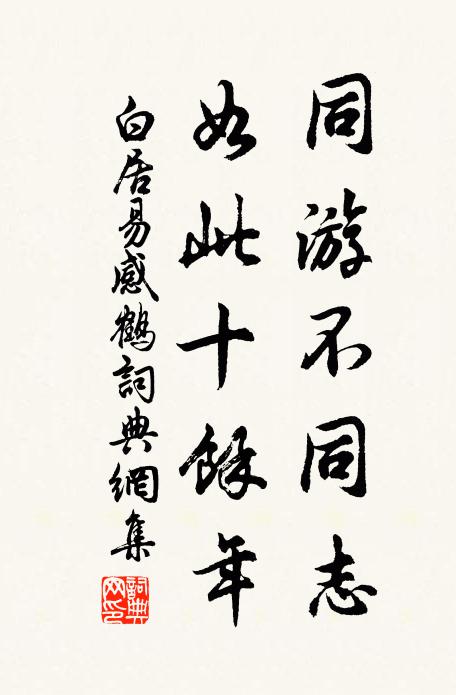 同游不同志
如此十餘年
白居易感鶴詞典網集
詞典網印